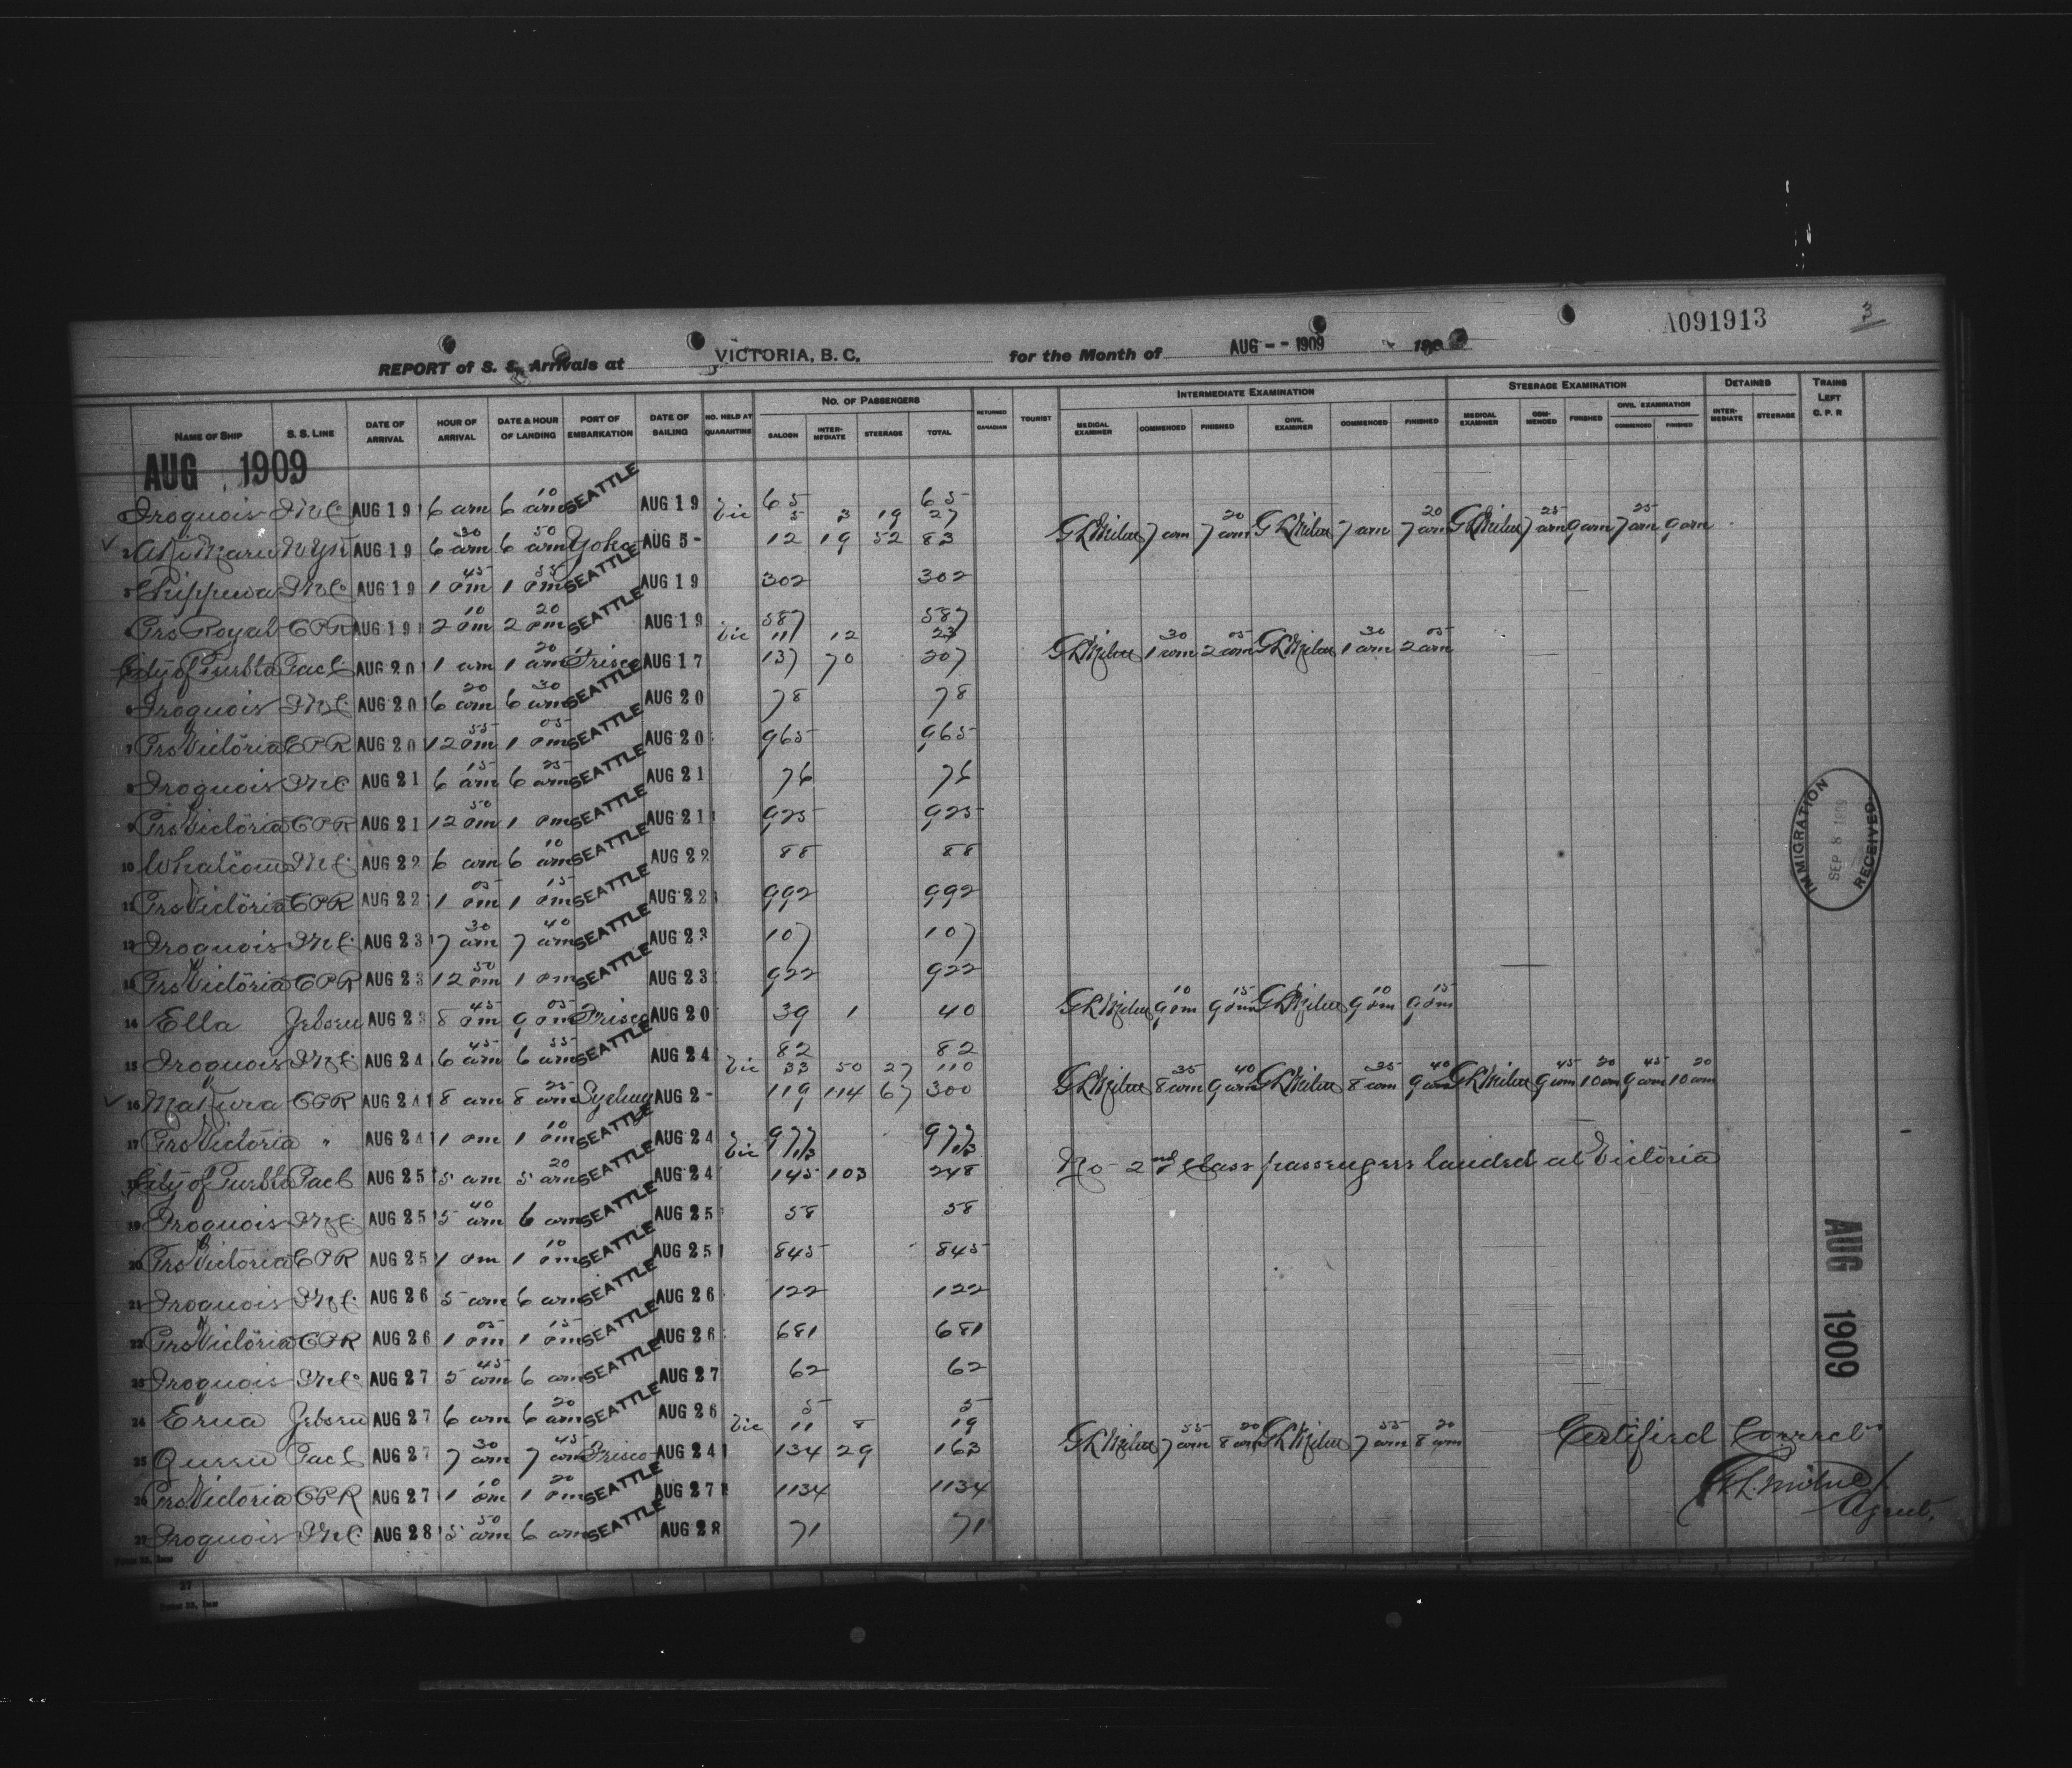 A091913 3
REPORT of S. S. Arrivals at VICTORIA, B. C. for the Month of AUG -- 1909 190
NAME OF SHIP S. S. LINE DATE OF ARRIVAL HOUR OF ARRIVAL DATE & HOUR OF LANDING PORT OF EMBARKATION DATE OF SAILING NO. HELD AT QUARANTINE NO. OF PASSENGERS SALOON INTER-MEDIATE STEERAGE TOTAL RETURNED CANADIAN TOURIST INTERMEDIATE EXAMINATION MEDICAL EXAMINER COMMENCED FINISHED CIVIL EXAMINER COMMENCED FINISHED STEERAGE EXAMINATION MEDICAL EXAMINER COM-MENCED FINISHED CIVIL EXAMINATION COMMENCED FINISHED DETAINED INTER-MEDIATE STEERAGE TRAINS LEFT C. P. R
AUG 1909
Iroquois AUG 19 6 am 6 10 am SEATTLE AUG 19 65 65
Vic 5 3 19 27
2 Aki Maru NYK AUG 19 6 30 am 6 50 am Yoko AUG 5- 12 19 52 83 GLMilne 7 am 7 20 am GLMilne 7 am 7 20 am GLMilne 7 25 am 9 am 7 25 am 9 am
3 Chippewa AUG 19 1 45 pm 1 55 pm SEATTLE AUG 19 302 302
4 Prs Royal CPR AUG 19 2 10 pm 2 20 pm SEATTLE AUG 19 587 587
Vic 11 12 23
City of Puebla Pacl AUG 20 1 am 1 20 am Frisco AUG 17 137 70 207 GLMilne 1 30 am 2 05 am GLMilne 1 30 am 2 05 am
6 Iroquois AUG 20 6 20 am 6 30 am SEATTLE AUG 20 78 78
7 Prs Victoria CPR AUG 20 12 55 pm 1 05 pm SEATTLE AUG 20 965 965
8 Iroquois AUG 21 6 15 am 6 25 am SEATTLE AUG 21 76 76
9 Prs Victoria CPR AUG 21 12 50 pm 1 pm SEATTLE AUG 21 925 925
10 Whatcom AUG 22 6 am 6 10 am SEATTLE AUG 22 88 88
11 Prs Victoria CPR AUG 22 1 05 pm 1 15 pm SEATTLE AUG 22 992 992
12 Iroquois AUG 23 7 30 am 7 40 am SEATTLE AUG 23 107 107
13 Prs Victoria CPR AUG 23 12 50 pm 1 pm SEATTLE AUG 23 922 922
14 Ella Jebsen AUG 23 8 45 pm 9 05 pm Frisco AUG 20 39 1 40 GLMilne 9 10 pm 9 15 pm GLMilne 9 10 pm 9 15 pm
15 Iroquois AUG 24 6 45 am 6 55 am SEATTLE AUG 24 82 82
Vic 33 50 27 110
16 Makura CPR AUG 24 8 am 8 25 am Sydney AUG 2- 119 114 67 300 GLMilne 8 35 am 9 40 am GLMilne 8 35 am 9 40 am GLMilne 9 45 am 10 20 am 9 45 am 10 20 am
17 Prs Victoria " AUG 24 1 pm 1 10 pm SEATTLE AUG 24 977 977
Vic 113 113
18 City of Puebla Pacl AUG 25 5 am 5 20 am SEATTLE AUG 24 145 103 248 No 2nd Class passengers landed at Victoria
19 Iroquois AUG 25 5 40 am 6 am SEATTLE AUG 25 58 58
20 Prs Victoria CPR AUG 25 1 pm 1 10 pm SEATTLE AUG 25 845 845
21 Iroquois AUG 26 5 am 6 am SEATTLE AUG 26 122 122
22 Prs Victoria CPR AUG 26 1 05 pm 1 15 pm SEATTLE AUG 26 681 681
23 Iroquois AUG 27 5 45 am 6 am SEATTLE AUG 27 62 62
24 Erna Jebsen AUG 27 6 am 6 20 am SEATTLE AUG 26 5 5
Vic 11 8 19
25 Queen Pacl AUG 27 7 30 am 7 45 am Frisco AUG 24 134 29 163 GLMilne 7 55 am 8 20 am GLMilne 7 55 am 8 20 am
26 Prs Victoria CPR AUG 27 1 10 pm 1 20 pm SEATTLE AUG 27 1134 1134
27 Iroquois AUG 28 5 50 am 6 am SEATTLE AUG 28 71 71
IMMIGRATION SEP 8 1909 RECEIVED
AUG 1909
Certified Correct
G.L. Milne
Agent.
27